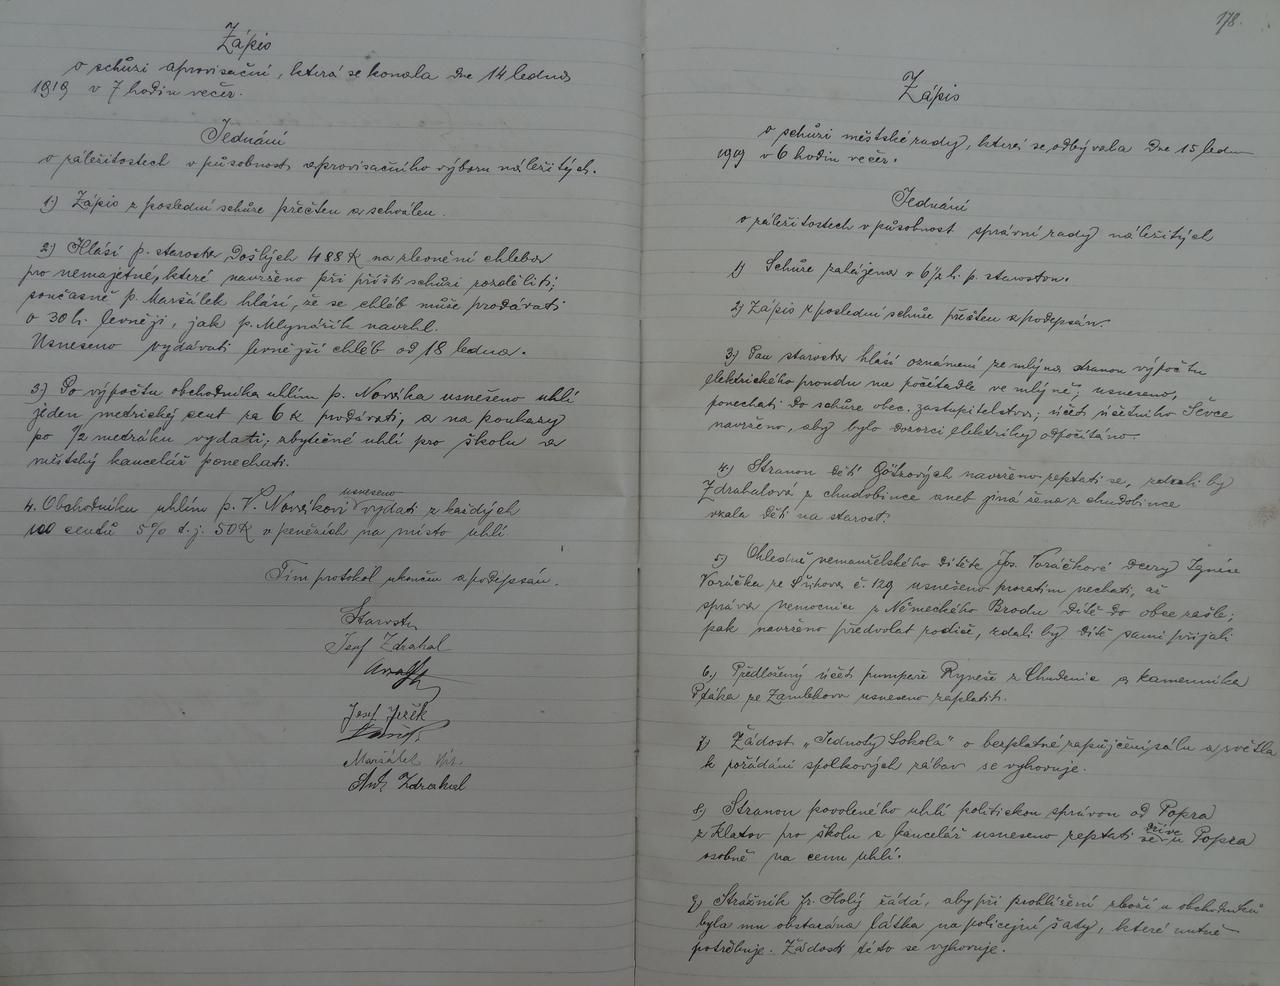 Zápis
o schůzi aprovisační, která se konala dne 14 ledna
1919 v 7 hodin večer.
Jednání
o záležitostech v působnost aprovisačního výboru náležitých.
1) Zápis z poslední schůze přečten a schválen.
2) Hlásí p. starosta došlých 488 K na zlevnění chleba
pro nemajetné, které navrženo při příští schůzi rozděliti;
současně p. Maršálek hlásí, že se chléb může prodávati
o 30 h. levněji, jak p. Mlynářík navrhl.
Usneseno vydávati levnější chléb od 18 ledna.
3) Po výpočtu obchodníka uhlím p. Nováka usnešeno uhlí
jeden metrický cent za 6 K prodávati, a na poukazy
po 1/2 metráku vydati; zbytečné uhlí pro školu a
městský kancelář ponechati.
4. Obchodníku uhlím p. V. Novákovi usneseno vydati z každých
100 centů 5% t.j. 50 K v penězích na místo uhlí.
Tím protokol ukončen a podepsán.
Starosta
Josef Zdrahal
Josef Jeřek
Maršálek
Ant. Zdrahal
178.
Zápis
o schůzi městské rady, která se odbývala dne 15 ledn
1919 v 6 hodin večer.
Jednání
o záležitostech v působnost správní rady náležitých
1) Schůze zahájena v 6 1/2 h. p. starostou.
2) Zápis z poslední schůze přečten a podepsán.
3) Pan starosta hlásí oznámení ze mlýna stranou výpočtu
elektrického proudu na počítadle ve mlýně; usneseno,
ponechati do schůze obec. zastupitelstva; účeti účetního Ševce
navrženo, aby bylo dozorci elektriky odpočítáno.
4) Stranou dětí Götzových navrženo zeptati se, zdali by
Zdrahalová z chudobince aneb jiná žena z chudobince
vzala děti na starost.
5) Ohledně nemanželského dítěte Jos. Voráčkové dcery Ignáce
Voráčka ze č. 129 usnešeno prozatím nechati, až
správa nemocnice z Německého Brodu dítě do obce zašle;
pak navrženo předvolat rodiče, zdali by dítě sami přijali
6) Předložený účeti pumpaře Ryneše z Chudenic a kamenníka
Ptáka ze usneseno zaplatiti.
7) Žádost „Jednoty Sokola" o bezplatné zapůjčení sálu a světla
k pořádání spolkových zábav se vyhovuje.
8) Stranou povoleného uhlí politickou správou od Popra
z Klatov pro školu a kancelář usneseno zeptati se dříve u Popra
osobně na cenu uhlí.
9) Strážník fr. Holý žádá, aby při prohlížení zboží u obchodníků
byla mu obstarána látka na policejní šaty, které nutně
potřebuje. Žádosti této se vyhovuje.